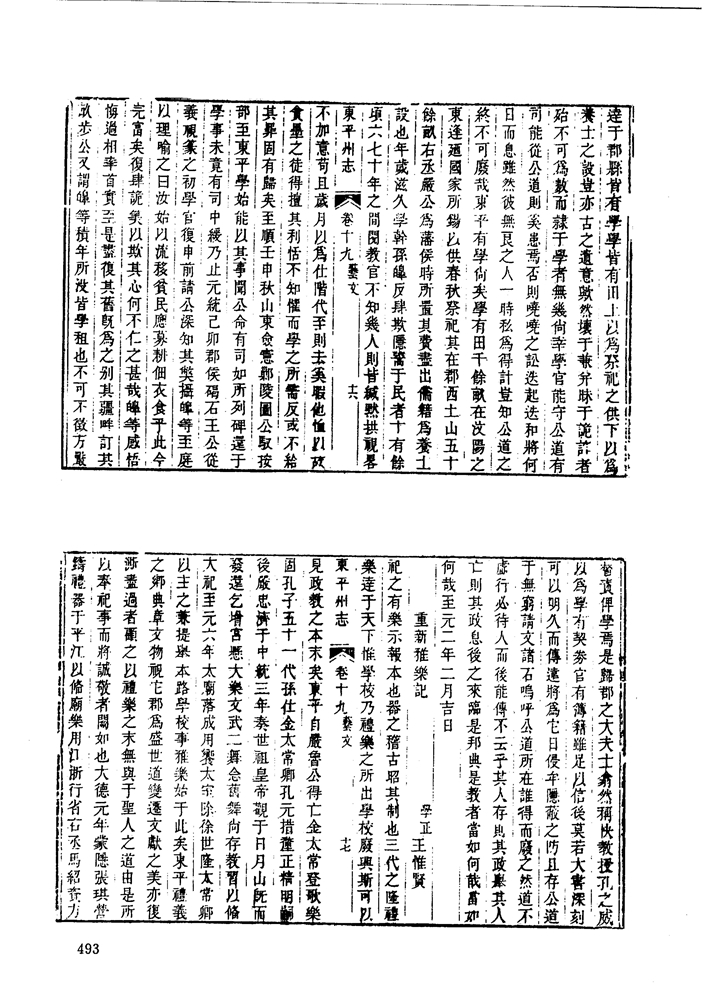 達于郡縣皆有學學皆有田上以爲祭祀之供下以爲
養士之設豈亦古之遺意歟然壞于兼并昧于詭詐者
殆不可爲數而隸于學者無幾尙幸學官能守公道有
司能從公道則奚患焉否則嘵嘵之訟迭起迭和將何
日而息雖然彼無良之人一時私爲得計豈知公道之
終不可廢哉東平有學尙矣學有田千餘畝在汶陽之
東逢遍國家所錫以供春秋祭祀其在郡西土山五十
餘畝右丞嚴公爲藩侯時所置其費盡出儒籍爲養士
設也年歲滋久學幹孫皞反肆欺隱鬻于民者十有餘
頃六七十年之間閱教官不知幾人則皆緘默拱視畧
東平州志 卷十九藝文 六
不加意苟且歲月以爲仕階代至則去奚暇他恤以故
貪墨之徒得擅其利恬不知懼而學之所需反或不給
其弊固有歸矣至順壬申秋山東僉憲鄭陵圖公馭按
部至東平學始能以其事聞公命有司如所列碑還于
學事未竟有司中緩乃止元統己卯郡侯碣石王公從
義視篆之初學官復申前請公深知其獘攝皞等至庭
以理喻之曰汝始以流移貧民應募耕佃衣食乎此今
完富矣復肆詭欒以欺其心何不仁之甚哉皞等感悟
悔過相率首實至是盡復其舊旣爲之别其疆畔訂其
畝步公又謂皞等積年所沒皆學租也不可不徵方嚴
督責俾學焉是歸郡之大夫士翕然稱快教授孔之威
以爲學有契劵官有簿籍雖足以信後莫若大書深刻
可以明久而傳遠將爲它日侵牟隱蔽之防且存公道
于無窮請文諸石嗚呼公道所在誰得而廢之然道不
虛行必待人而後能傳不云乎其人存則其政舉其人
亡則其政息後之來臨是邦典是教者當如何哉當如
何哉至元二年二月吉日
重新雅樂記 學正王惟賢
祀之有樂示報本也器之稽古昭其制也三代之隆禮
樂達于天下惟學校乃禮樂之所出學校廢興斯可以
東平州志 卷十九藝文 七
見政教之本末矣東平自嚴魯公得亡金太常登歌樂
固孔子五十一代孫仕金太常卿孔元措董正精明嗣
後嚴忠濟于中統三年奏世祖皇帝觀于日月山旣而
發還乞增宮懸大樂文武二舞念舊舞尙存教習以備
大祀至元六年太廟落成用饗太室除徐世隆太常卿
以主之兼提舉本路學校事雅樂始于此矣東平禮義
之鄉典章文物視它郡爲盛世道變遷文獻之美亦復
澌盡過者顧之以禮樂之末無與于聖人之道由是所
以奉祀事而將誠敬者闕如也大德元年蒙隱張琪營
鑄禮器于平江以備廟樂用江浙行省右丞馬紹資力
493